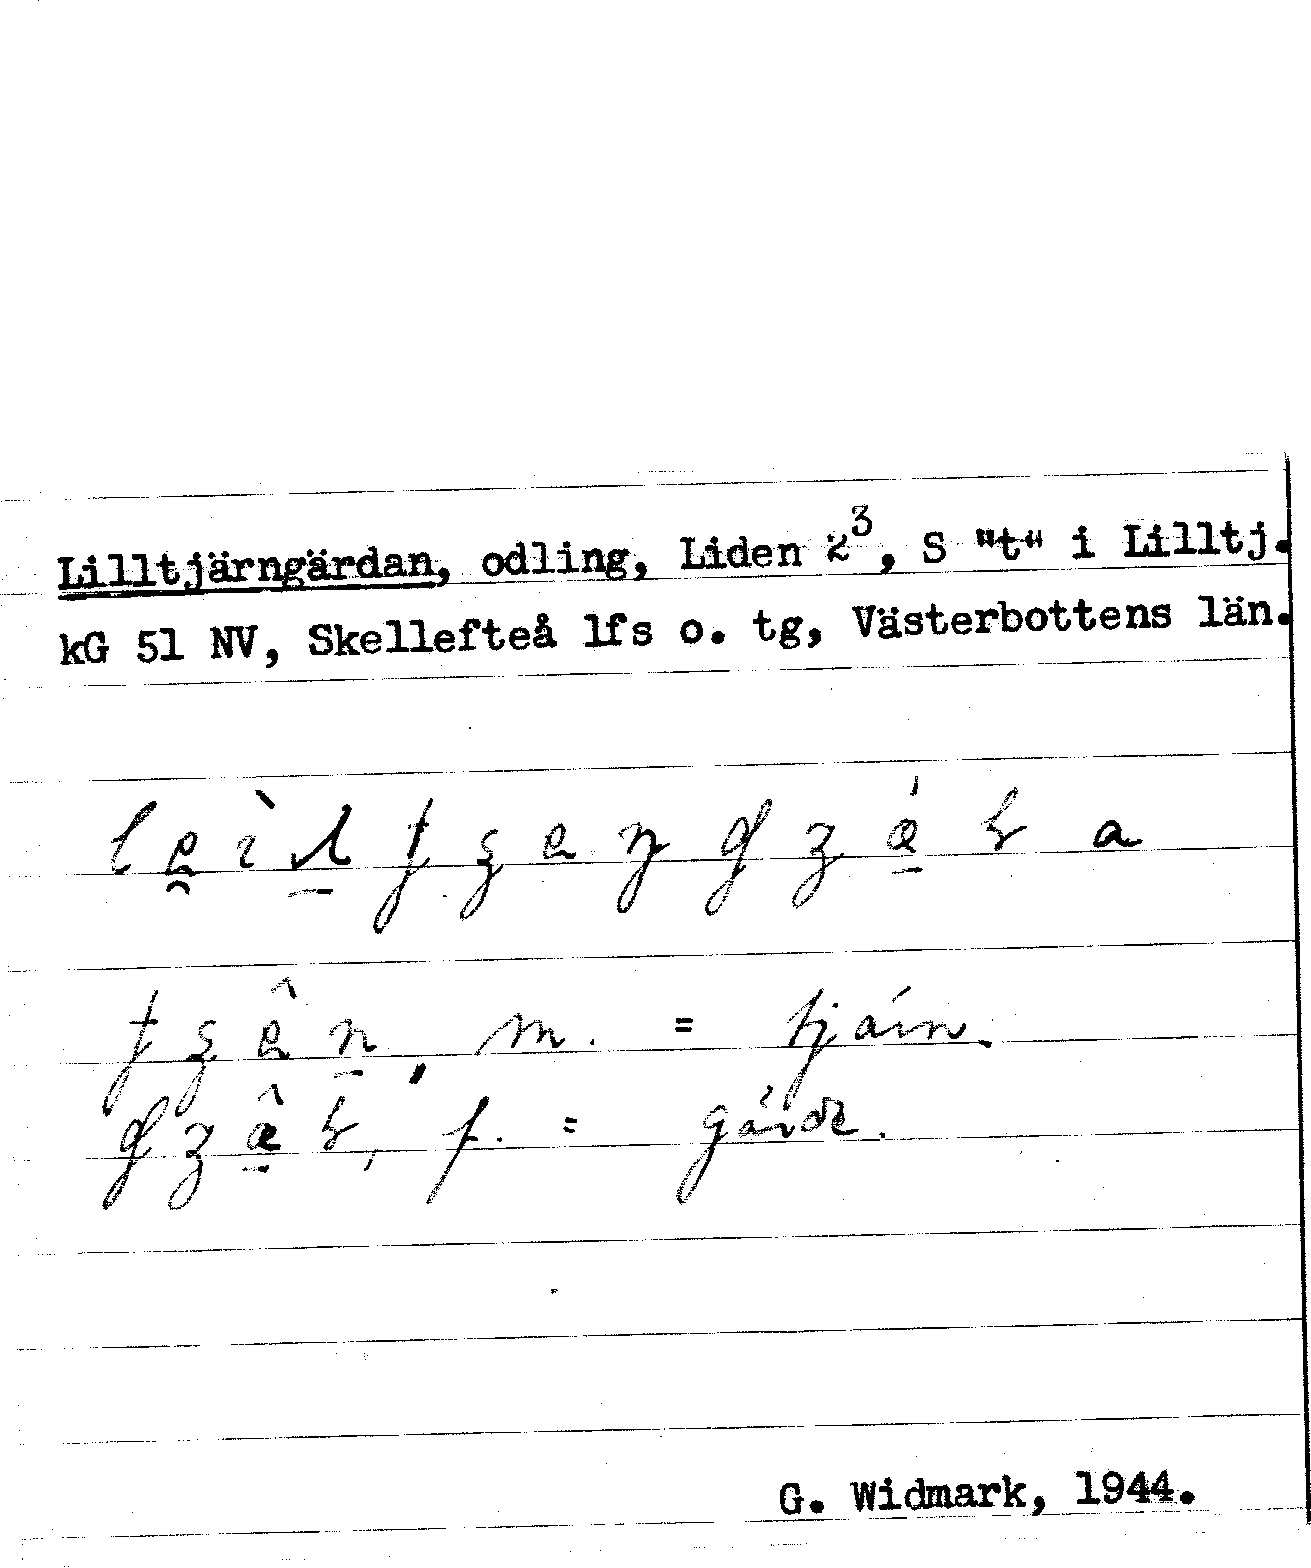 Lilltjärngärdan, odling, Liden 2³, S "t" i Lilltj.
kG 51 NV, Skellefteå lfs o. tg, Västerbottens län.
m. = tjärn.
f. = gärde.
G. Widmark, 1944.